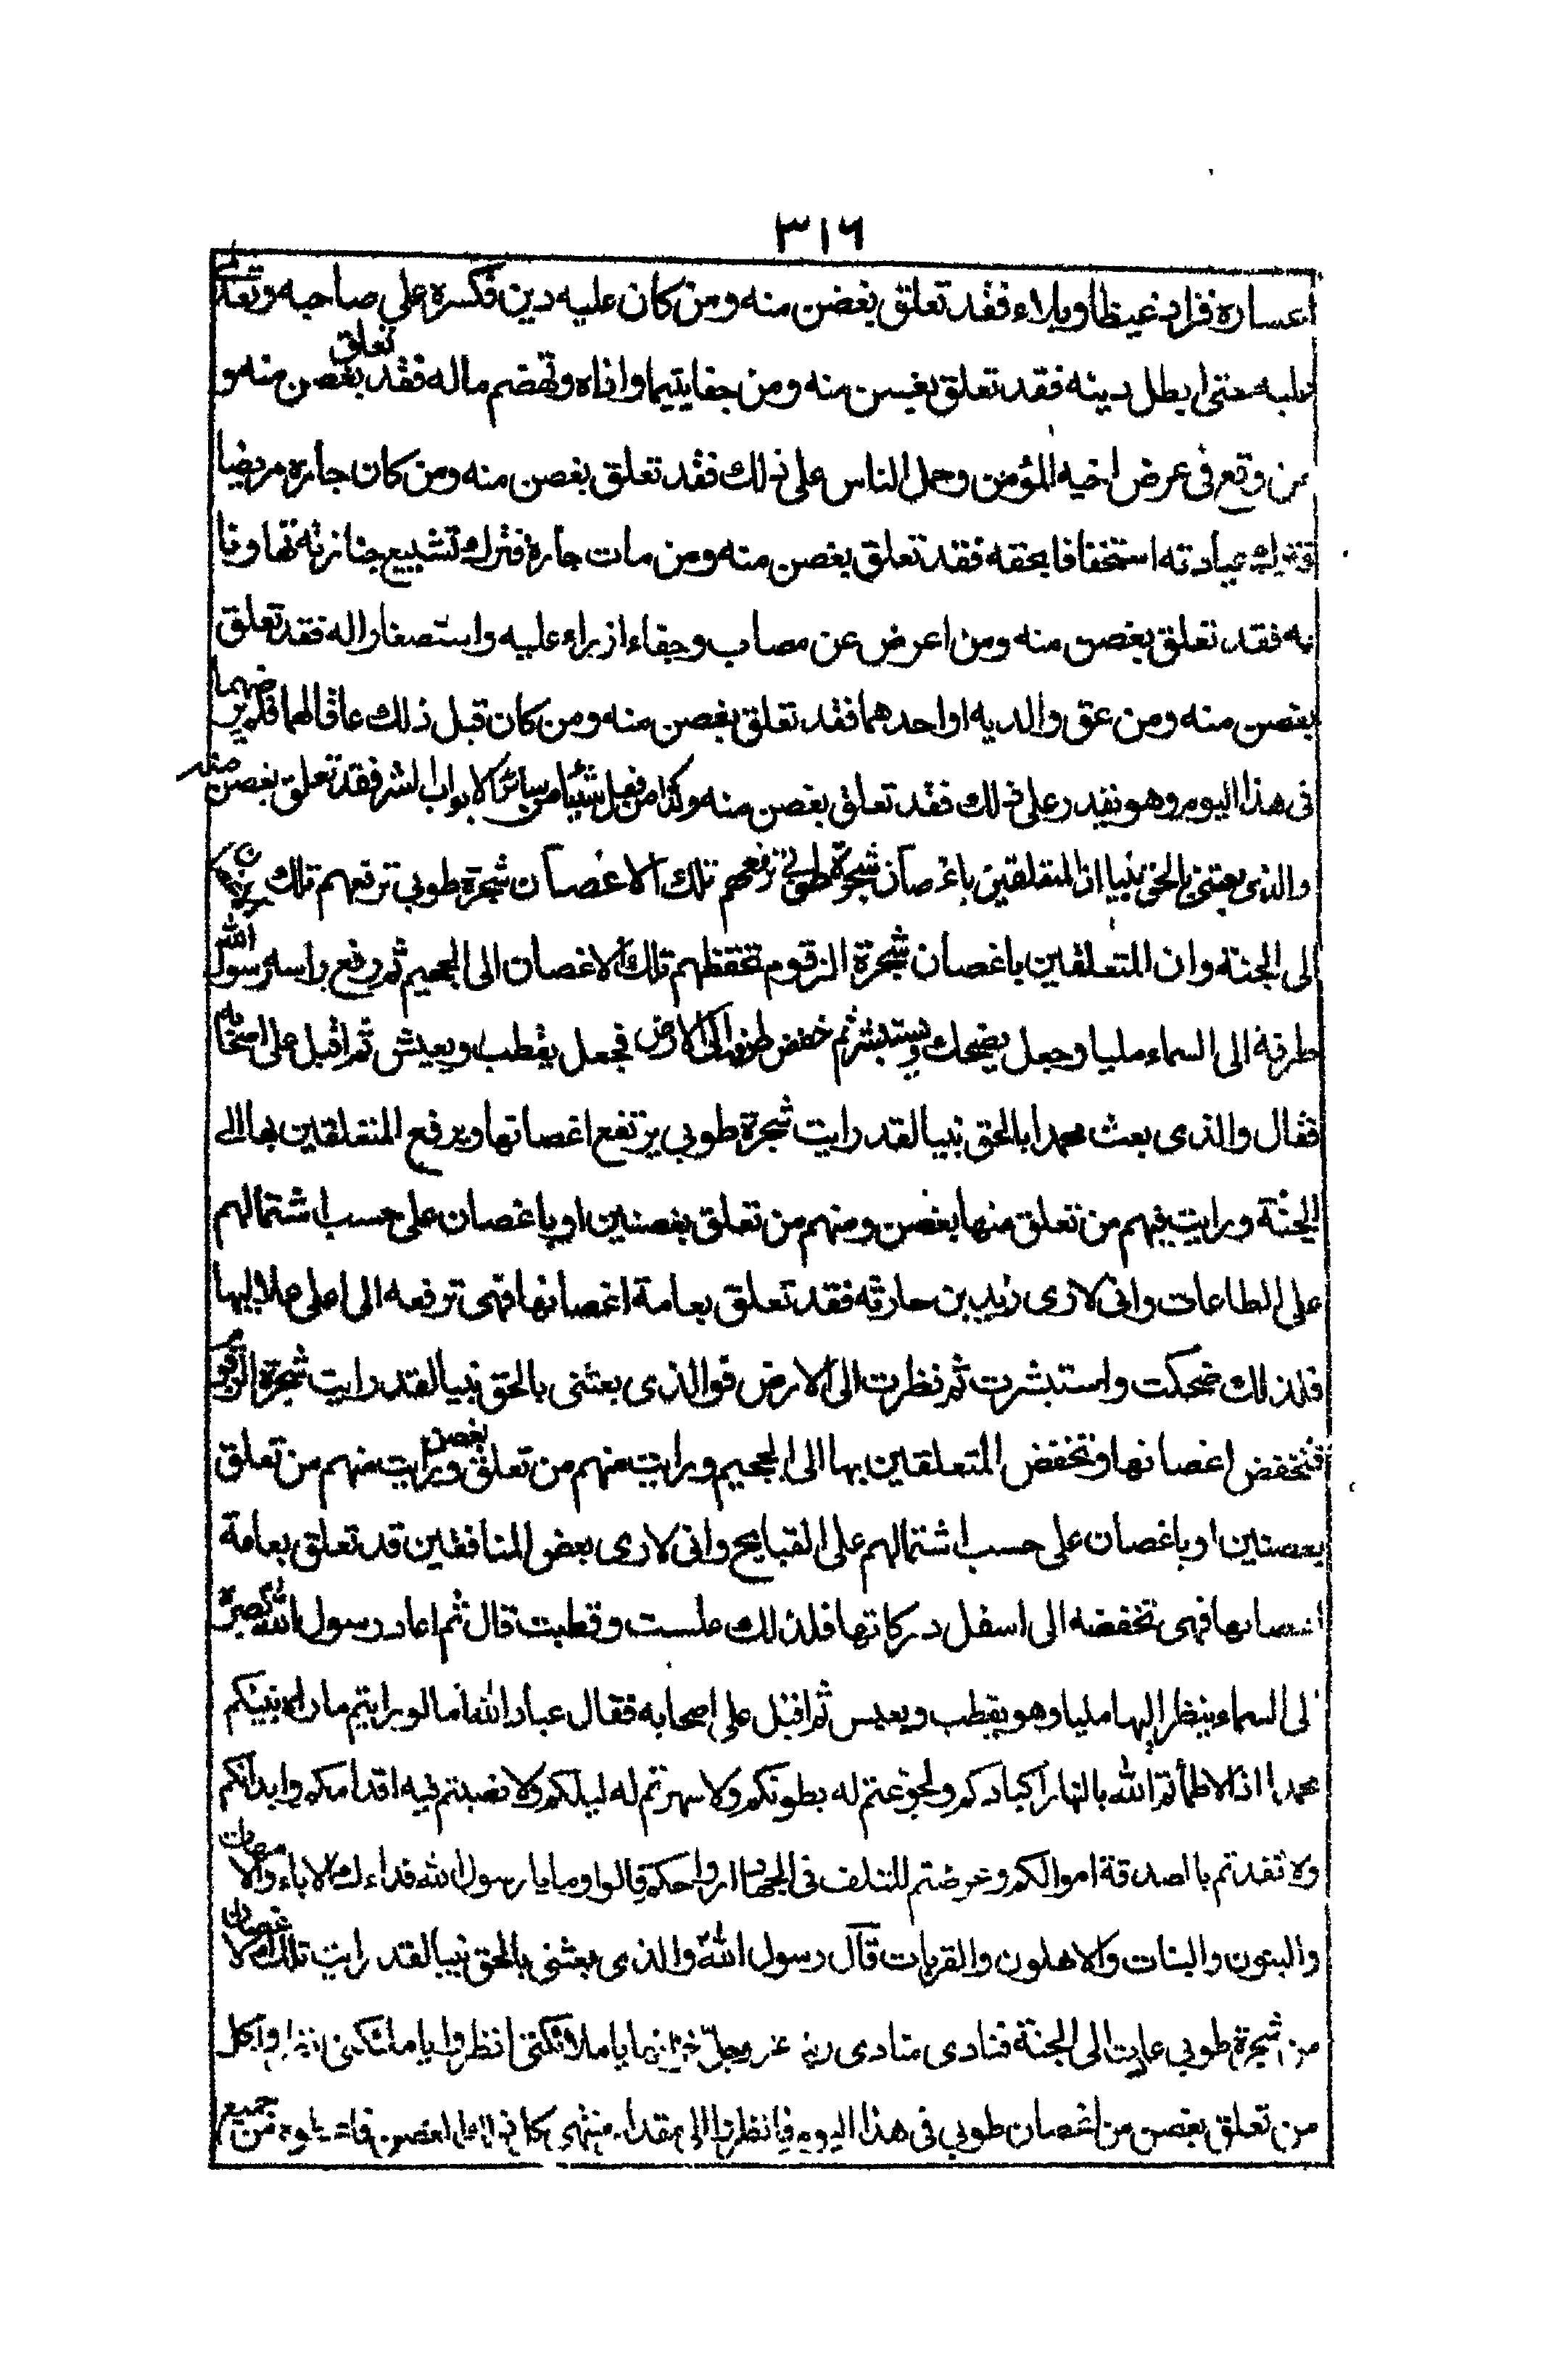 ٣١٦
اعساره فزاده غيظا وبلاء فقد تعلق بغصن منه ومن كان عليه دين فكسره على صاحبه وتعدى
عليه حتى ابطل دينه فقد تعلق بغصن منه ومن جفا يتيما واذاه وتهضم ماله فقد تعلق بغصن منه و
من وقع فى عرض اخيه المؤمن وحمل الناس على ذلك فقد تعلق بغصن منه ومن كان جاره مريضا
فترك عيادته استخفافا بحقه فقد تعلق بغصن منه ومن مات جاره فترك تشييع جنازته تهاونا
به فقد تعلق بغصن منه ومن اعرض عن مصاب وجفاه ازراء عليه واستصغارا له فقد تعلق
بغصن منه ومن عق والديه او احدهما فقد تعلق بغصن منه ومن كان قبل ذلك عاقا لهما فلم يرضهما
فى هذا اليوم وهو يقدر على ذلك فقد تعلق بغصن منه وكذا من فعل شيئا من سائر ابواب الشر فقد تعلق بغصن منه
والذى بعثنى بالحق نبيا ان المتعلقين باغصان شجرة طوبى ترفعهم تلك الاغصان شجرة طوبى ترفعهم تلك
الى الجنة وان المتعلقين باغصان شجرة الزقوم تخفضهم تلك الاغصان الى الجحيم ثم رفع راسه رسول الله
طرفه الى السماء مليا وجعل يضحك ويستبشر ثم خفض طرفه الى الارض فجعل يقطب ويعبس ثم اقبل على اصحابه
فقال والذى بعث محمدا بالحق نبيا لقد رايت شجرة طوبى يرتفع اغصانها ويرفع المتعلقين بها الى
الجنة ورايت فيهم من تعلق منها بغصن ومنهم من تعلق بغصنين او باغصان على حسب اشتمالهم
على الطاعات وانى لارى زيد بن حارثه فقد تعلق بعامة اغصانها فهى ترفعه الى اعلى علاليها
فلذلك ضحكت واستبشرت ثم نظرت الى الارض فوالذى بعثنى بالحق نبيا لقد رايت شجرة الزقوم
فتخفض اغصانها وتخفض المتعلقين بها الى الجحيم ورايت منهم من تعلق بغصن ورايت منهم من تعلق
بغصنين او باغصان على حسب اشتمالهم على القبايح وانى لارى بعض المنافقين قد تعلق بعامة
اغصانها فهى تخفضه الى اسفل دركاتها فلذلك عبست وقطبت قال ثم اعاد رسول الله بصره
الى السماء ينظر اليها مليا وهو يقطب ويعبس ثم اقبل على اصحابه فقال عباد الله اما لو رايتم ما راه نبيكم
محمد اذا لاظمأتم لله بالنهار اكبادكم ولجوعتم له بطونكم ولاسهرتم له ليلكم ولانصبتم فيه اقدامكم وابدانكم
ولانفدتم بالصدقة اموالكم وعرضتم للتلف فى الجهاد ارواحكم قالوا وما يا رسول الله فداءك الاباء والامهات
والبنون والبنات والاهلون والقربات قال رسول الله والذى بعثنى بالحق نبيا لقد رايت تلك الاغصان
من شجرة طوبى عادت الى الجنة فنادى منادى ربنا عز وجل خزانها يا ملائكتى انظروا يا ملئكتى وكل
من تعلق بغصن من اغصان طوبى فى هذا اليوم فانظروا الى مقدار منتهى الغصن جميع